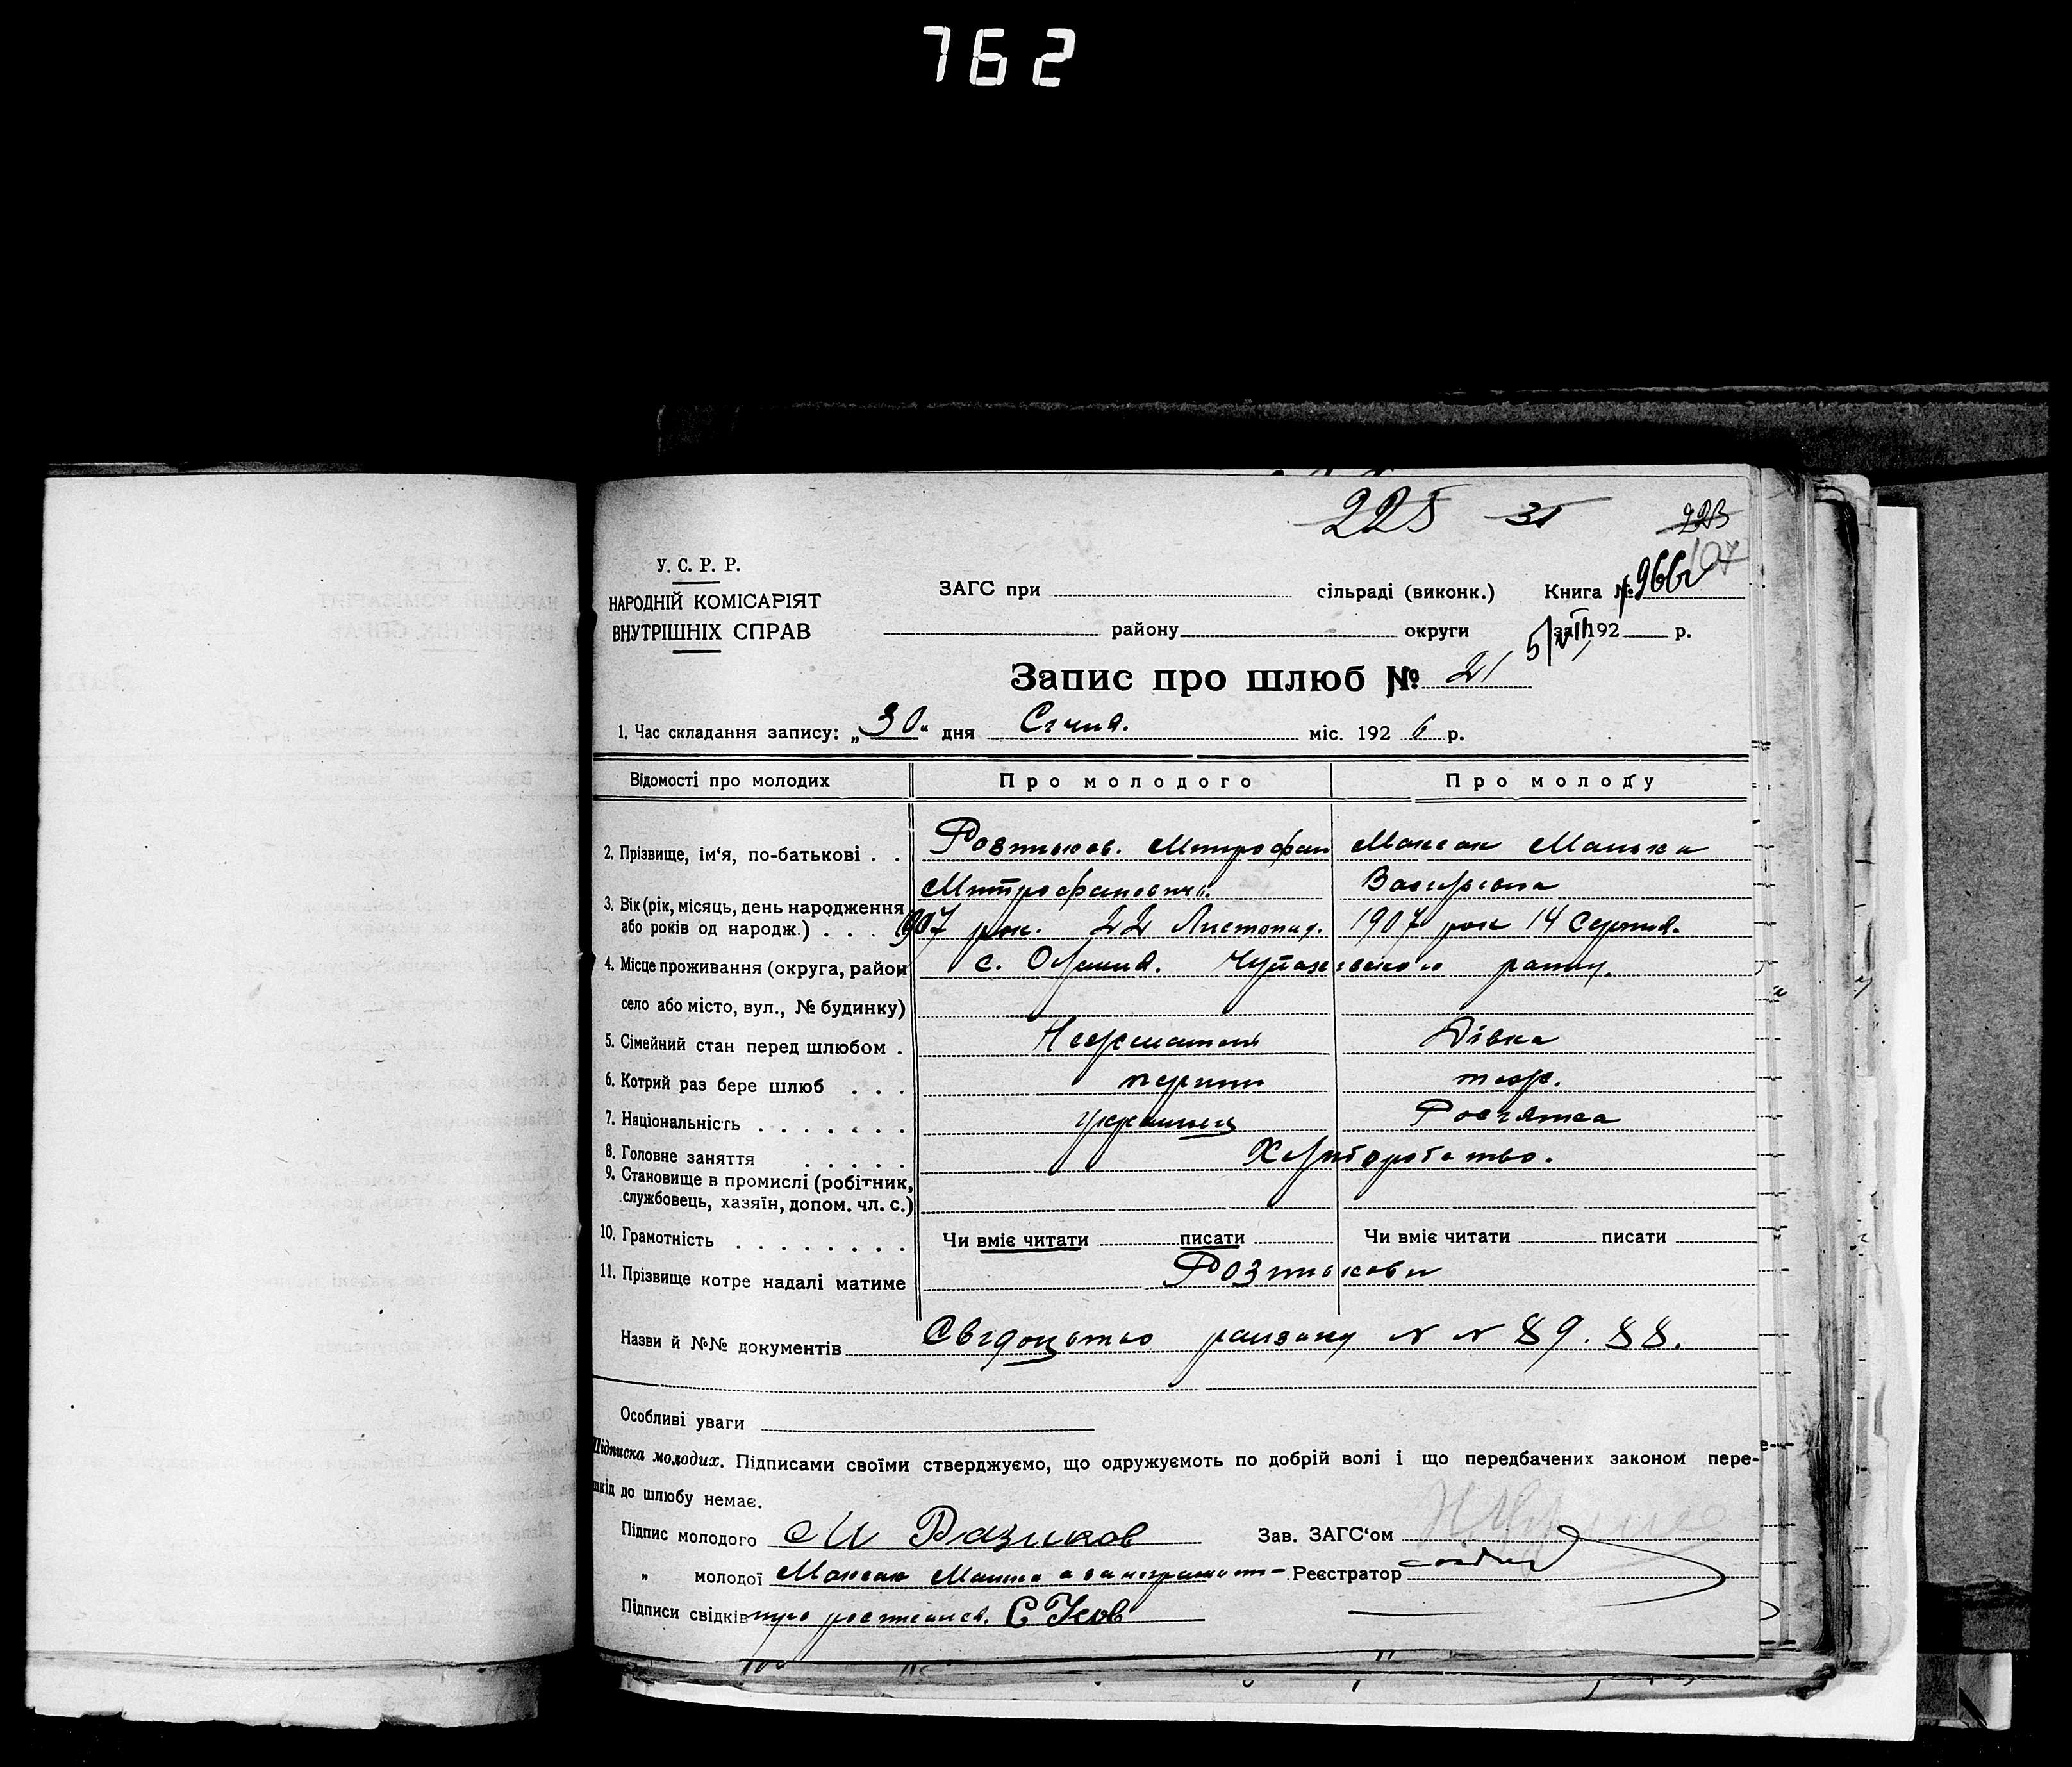 762
225 31 223
107
У. С. Р. Р.
НАРОДНІЙ КОМІСАРІЯТ
ВНУТРІШНІХ СПРАВ
ЗАГС при сільраді (виконк.) Книга № 966
району округи за 192 р.
5/VII
Запис про шлюб № 21
1. Час складання запису: „30“ дня Січня. міс. 192 6 р.
Відомості про молодих Про молодого Про молоду
2. Прізвище, ім‘я, по-батькові . . Розтиков. Митрофан Моксак
Митрофанович. Васильевна
3. Вік (рік, місяць, день народження
або років од народж.) . . . 1907 рок. 22 Листопад. 1907 рок 14 Серпня.
4. Місце проживання (округа, район с. Чутовського району.
село або місто, вул., № будинку)
5. Сімейний стан перед шлюбом . Нежонатий Дівка
6. Котрий раз бере шлюб . . . перший тож.
7. Національність . . . . . . . українець
8. Головне заняття . . . . . Хліборобство.
9. Становище в промислі (робітник,
службовець, хазяїн, допом. чл. с.)
10. Грамотність . . . . . . . . Чи вміє читати писати Чи вміє читати писати
11. Прізвище котре надалі матиме Розтикови
Назви й №№ документів Свідоцтво N N 89. 88.
Особливі уваги
Підписка молодих. Підписами своїми стверджуємо, що одружуємоть по добрій волі і що передбачених законом пере-
шкід до шлюбу немає.
Підпис молодого М Разиков Зав. ЗАГС‘ом
„ молодої Моксак а за неграмотн– Реєстратор
Підписи свідків С Усов